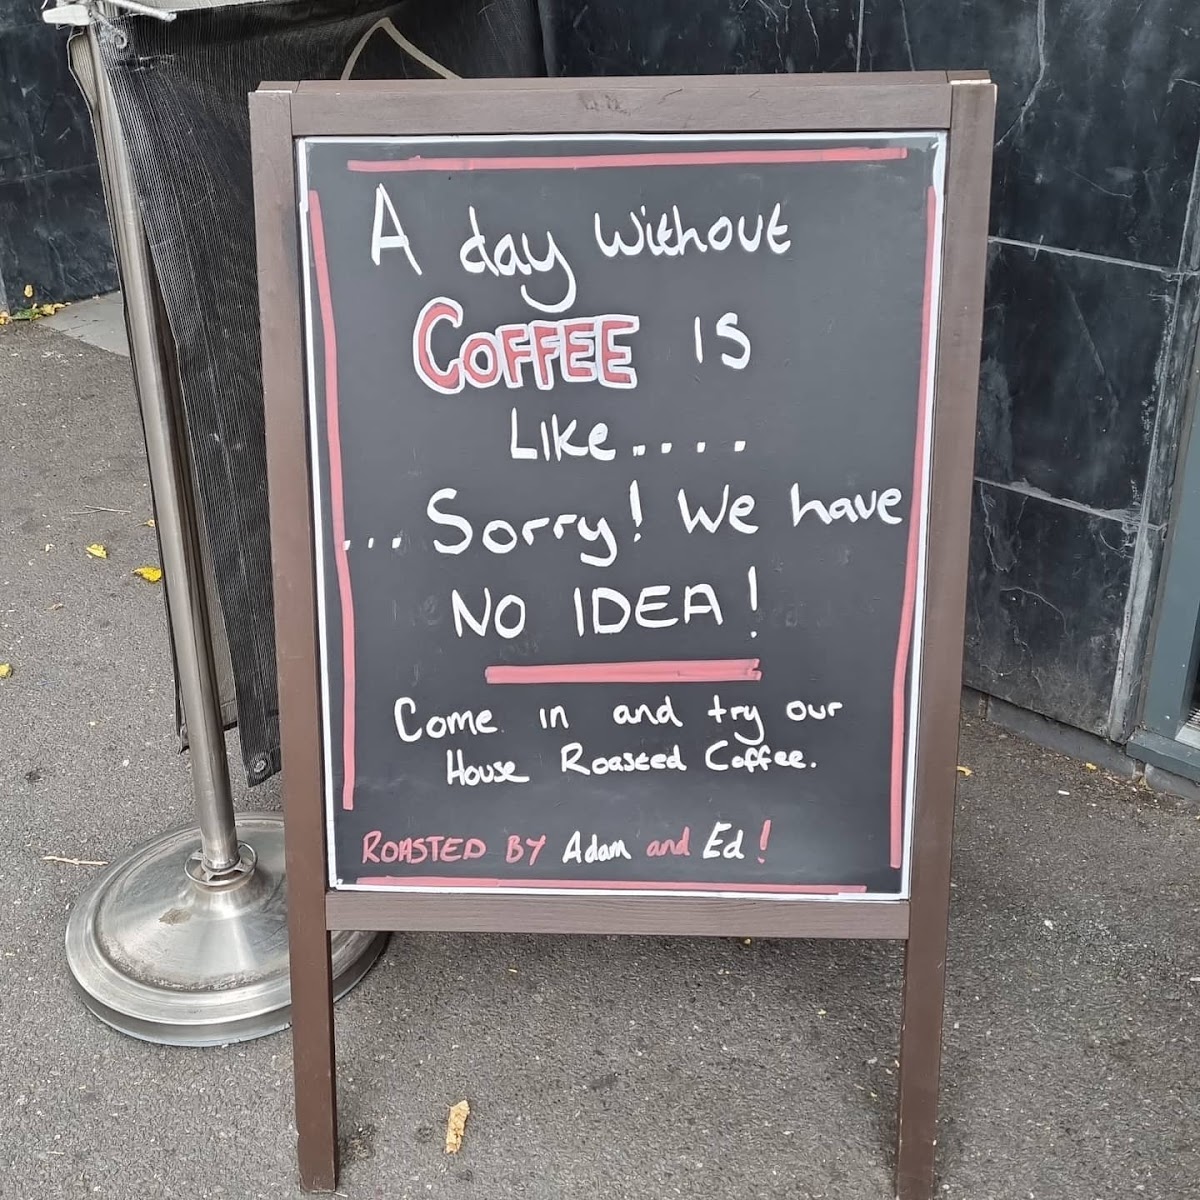 A day without
COFFEE IS
Like....
...Sorry! We have
NO IDEA!
Come in and try our
House Roasted Coffee.
ROASTED BY Adam and Ed!